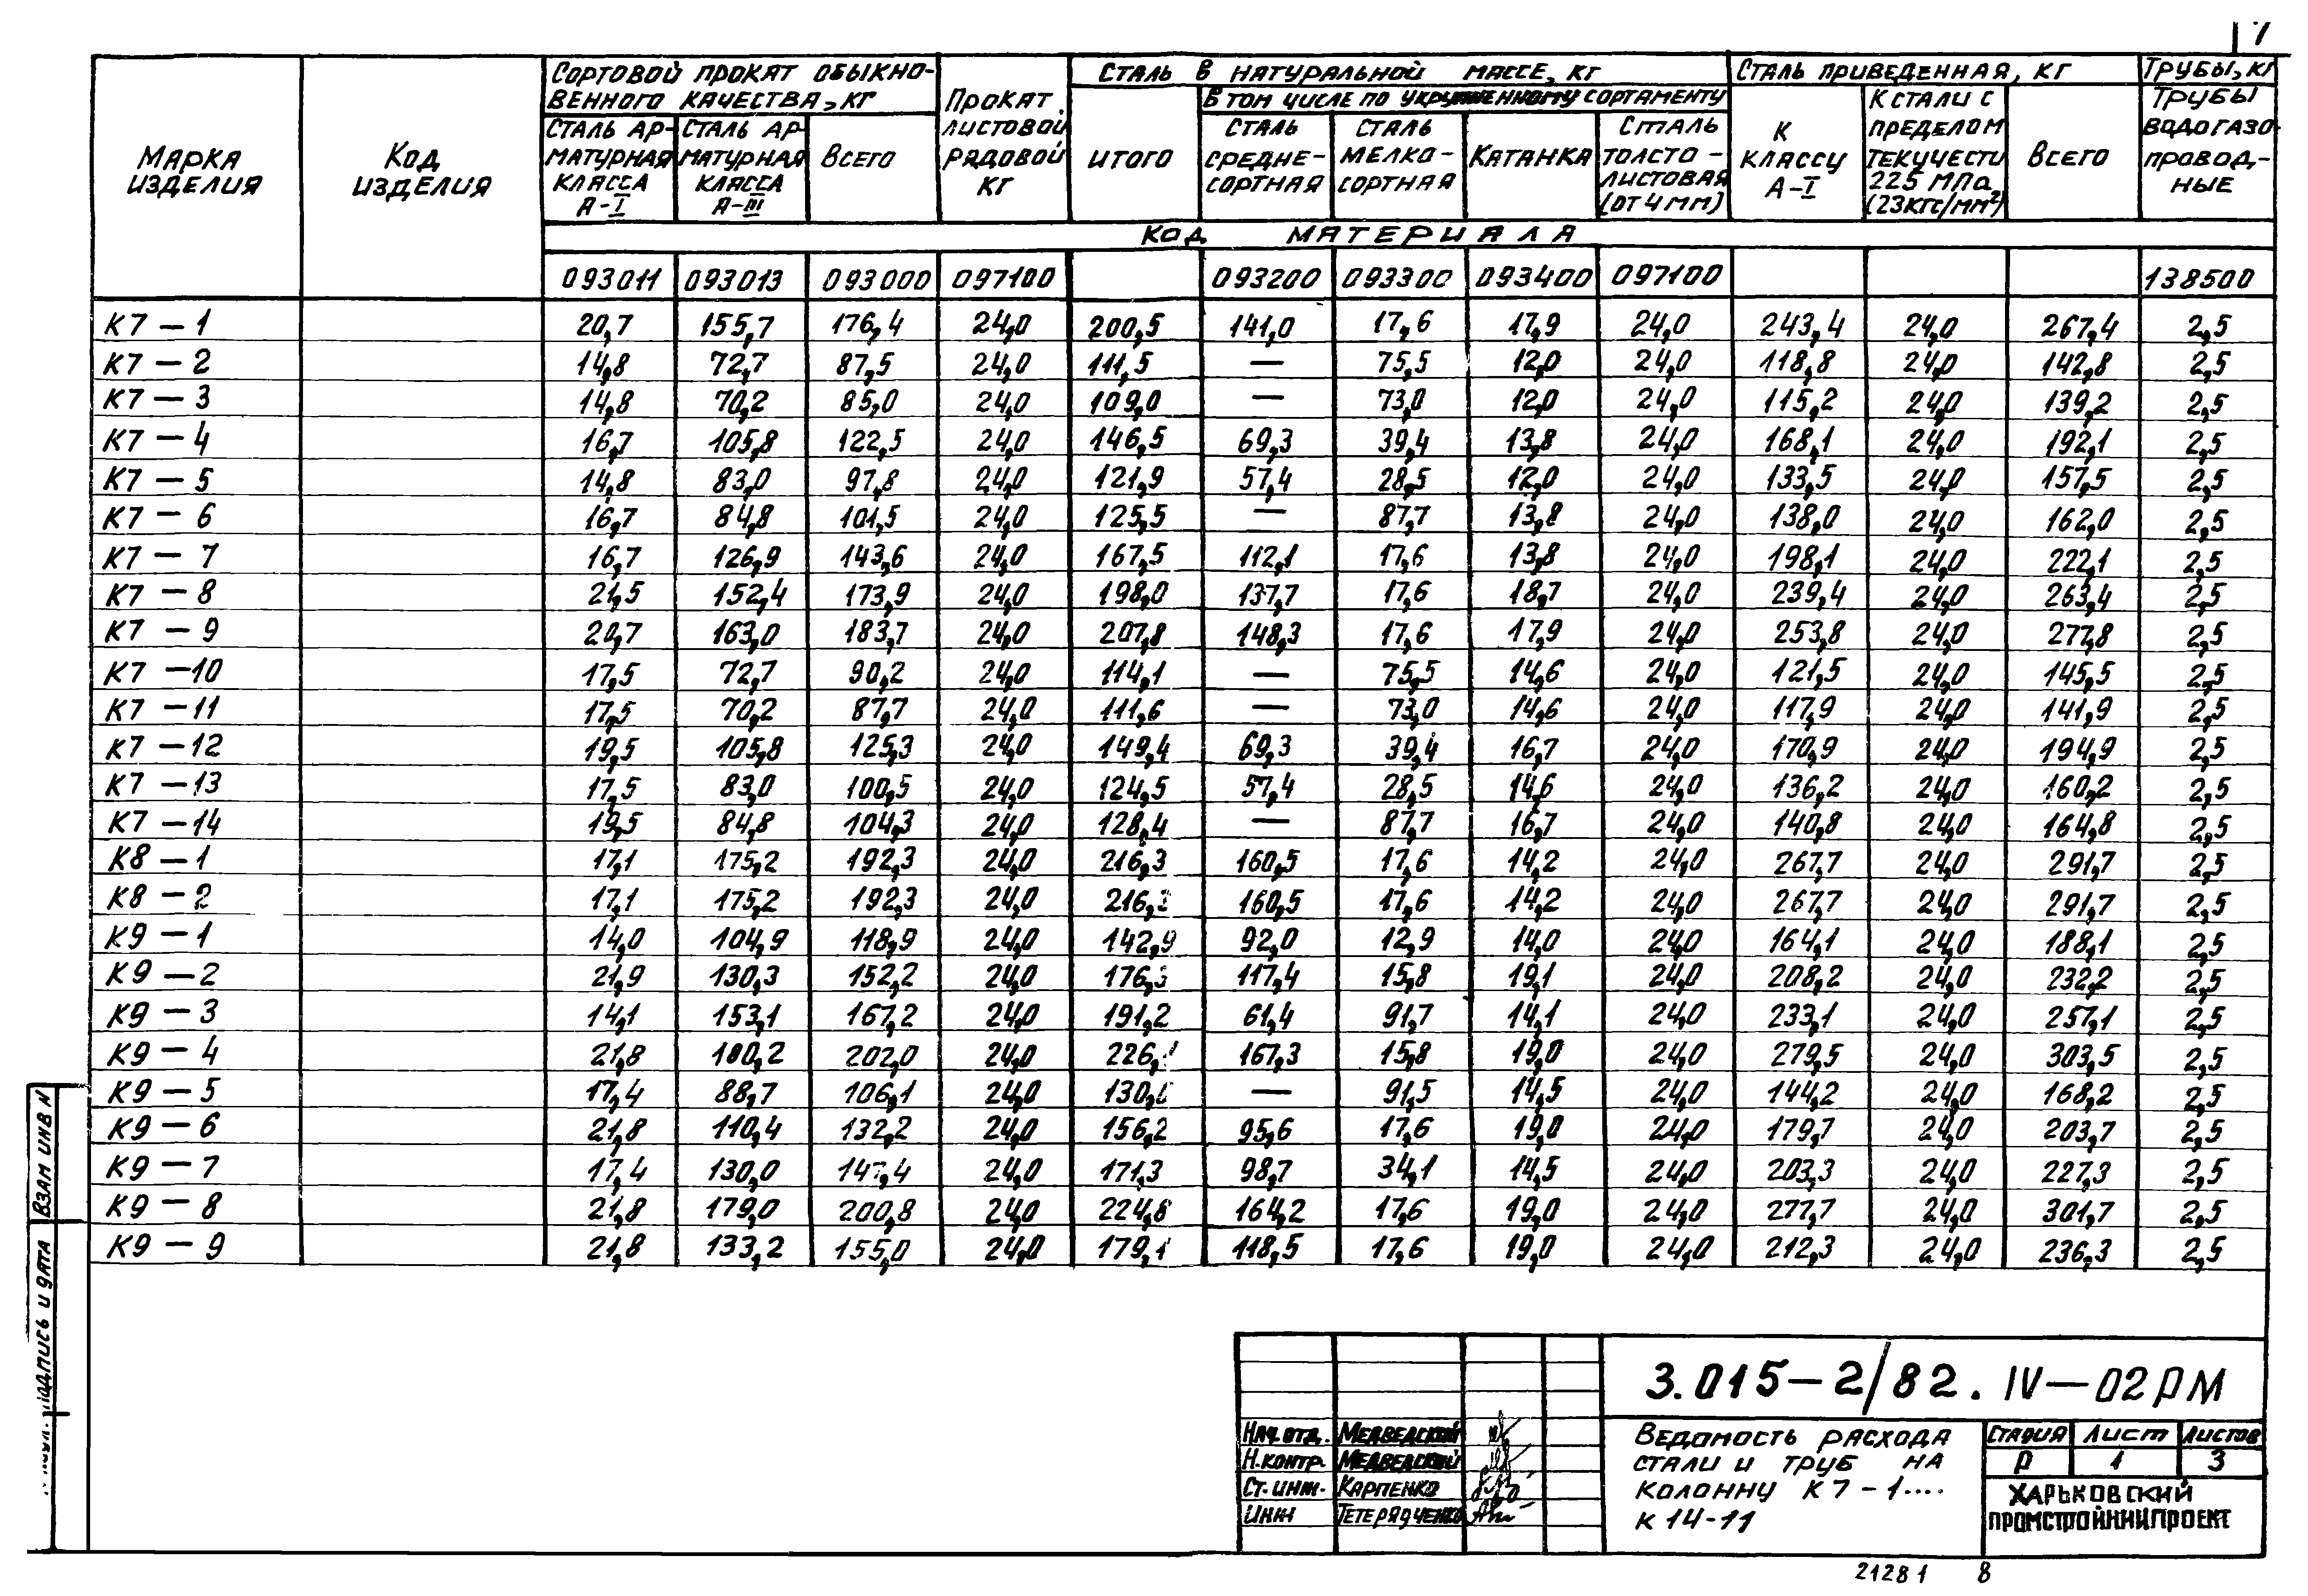 7
МАРКА ИЗДЕЛИЯ | КОД ИЗДЕЛИЯ | СОРТОВОЙ ПРОКАТ ОБЫКНОВЕННОГО КАЧЕСТВА, КГ | ПРОКАТ ЛИСТОВОЙ РЯДОВОЙ КГ | СТАЛЬ В НАТУРАЛЬНОЙ МАССЕ, КГ | СТАЛЬ ПРИВЕДЕННАЯ, КГ | ТРУБЫ, КГ
СТАЛЬ АРМАТУРНАЯ КЛАССА А-I | СТАЛЬ АРМАТУРНАЯ КЛАССА А-III | ВСЕГО | ИТОГО | В ТОМ ЧИСЛЕ ПО УКРУПНЕННОМУ СОРТАМЕНТУ | К КЛАССУ А-I | К СТАЛИ С ПРЕДЕЛОМ ТЕКУЧЕСТИ 225 МПА (23КГС/ММ²) | ВСЕГО | ТРУБЫ ВОДОГАЗОПРОВОДНЫЕ
СТАЛЬ СРЕДНЕ-СОРТНАЯ | СТАЛЬ МЕЛКО-СОРТНАЯ | КАТАНКА | СТАЛЬ ТОЛСТО-ЛИСТОВАЯ (ОТ 4 ММ)
КОД МАТЕРИАЛА
093011 093013 093000 097100 093200 093300 093400 097100 138500
К7-1 20,7 155,7 176,4 24,0 200,5 141,0 17,6 17,9 24,0 243,4 24,0 267,4 2,5
К7-2 14,8 72,7 87,5 24,0 111,5 — 75,5 12,0 24,0 118,8 24,0 142,8 2,5
К7-3 14,8 70,2 85,0 24,0 109,0 — 73,0 12,0 24,0 115,2 24,0 139,2 2,5
К7-4 16,7 105,8 122,5 24,0 146,5 69,3 39,4 13,8 24,0 168,1 24,0 192,1 2,5
К7-5 14,8 83,0 97,8 24,0 121,9 57,4 28,5 12,0 24,0 133,5 24,0 157,5 2,5
К7-6 16,7 84,8 101,5 24,0 125,5 — 87,7 13,8 24,0 138,0 24,0 162,0 2,5
К7-7 16,7 126,9 143,6 24,0 167,5 112,1 17,6 13,8 24,0 198,1 24,0 222,1 2,5
К7-8 21,5 152,4 173,9 24,0 198,0 137,7 17,6 18,7 24,0 239,4 24,0 263,4 2,5
К7-9 20,7 163,0 183,7 24,0 207,8 148,3 17,6 17,9 24,0 253,8 24,0 277,8 2,5
К7-10 17,5 72,7 90,2 24,0 114,1 — 75,5 14,6 24,0 121,5 24,0 145,5 2,5
К7-11 17,5 70,2 87,7 24,0 111,6 — 73,0 14,6 24,0 117,9 24,0 141,9 2,5
К7-12 19,5 105,8 125,3 24,0 149,4 69,3 39,4 16,7 24,0 170,9 24,0 194,9 2,5
К7-13 17,5 83,0 100,5 24,0 124,5 57,4 28,5 14,6 24,0 136,2 24,0 160,2 2,5
К7-14 19,5 84,8 104,3 24,0 128,4 — 87,7 16,7 24,0 140,8 24,0 164,8 2,5
К8-1 17,1 175,2 192,3 24,0 216,3 160,5 17,6 14,2 24,0 267,7 24,0 291,7 2,5
К8-2 17,1 175,2 192,3 24,0 216,3 160,5 17,6 14,2 24,0 267,7 24,0 291,7 2,5
К9-1 14,0 104,9 118,9 24,0 142,9 92,0 12,9 14,0 24,0 164,1 24,0 188,1 2,5
К9-2 21,9 130,3 152,2 24,0 176,3 117,4 15,8 19,1 24,0 208,2 24,0 232,2 2,5
К9-3 14,1 153,1 167,2 24,0 191,2 61,4 91,7 14,1 24,0 233,1 24,0 257,1 2,5
К9-4 21,8 180,2 202,0 24,0 226,1 167,3 15,8 19,0 24,0 279,5 24,0 303,5 2,5
К9-5 17,4 88,7 106,1 24,0 — 91,5 14,5 24,0 144,2 24,0 168,2 2,5
К9-6 21,8 110,4 132,2 24,0 156,2 95,6 17,6 19,0 24,0 179,7 24,0 203,7 2,5
К9-7 17,4 130,0 147,4 24,0 171,3 98,7 34,1 14,5 24,0 203,3 24,0 227,3 2,5
К9-8 21,8 179,0 200,8 24,0 224,8 164,2 17,6 19,0 24,0 277,7 24,0 301,7 2,5
К9-9 21,8 133,2 155,0 24,0 179,1 118,5 17,6 19,0 24,0 212,3 24,0 236,3 2,5
ВЗАМ ИНВ N
ПОДПИСЬ И ДАТА
3.015-2/82. IV-02РМ
НАЧ. ОТД. МЕДВЕДСКИЙ
Н. КОНТР. МЕДВЕДСКИЙ
СТ. ИНЖ. КАРПЕНКО
ИНЖ ТЕТЕРЯДЧЕНКО
ВЕДОМОСТЬ РАСХОДА
СТАЛИ И ТРУБ НА
КОЛОННУ К 7-1....
К 14-11
СТАДИЯ ЛИСТ ЛИСТОВ
Р 1 3
ХАРЬКОВСКИЙ
ПРОМСТРОЙНИИПРОЕКТ
21281 8